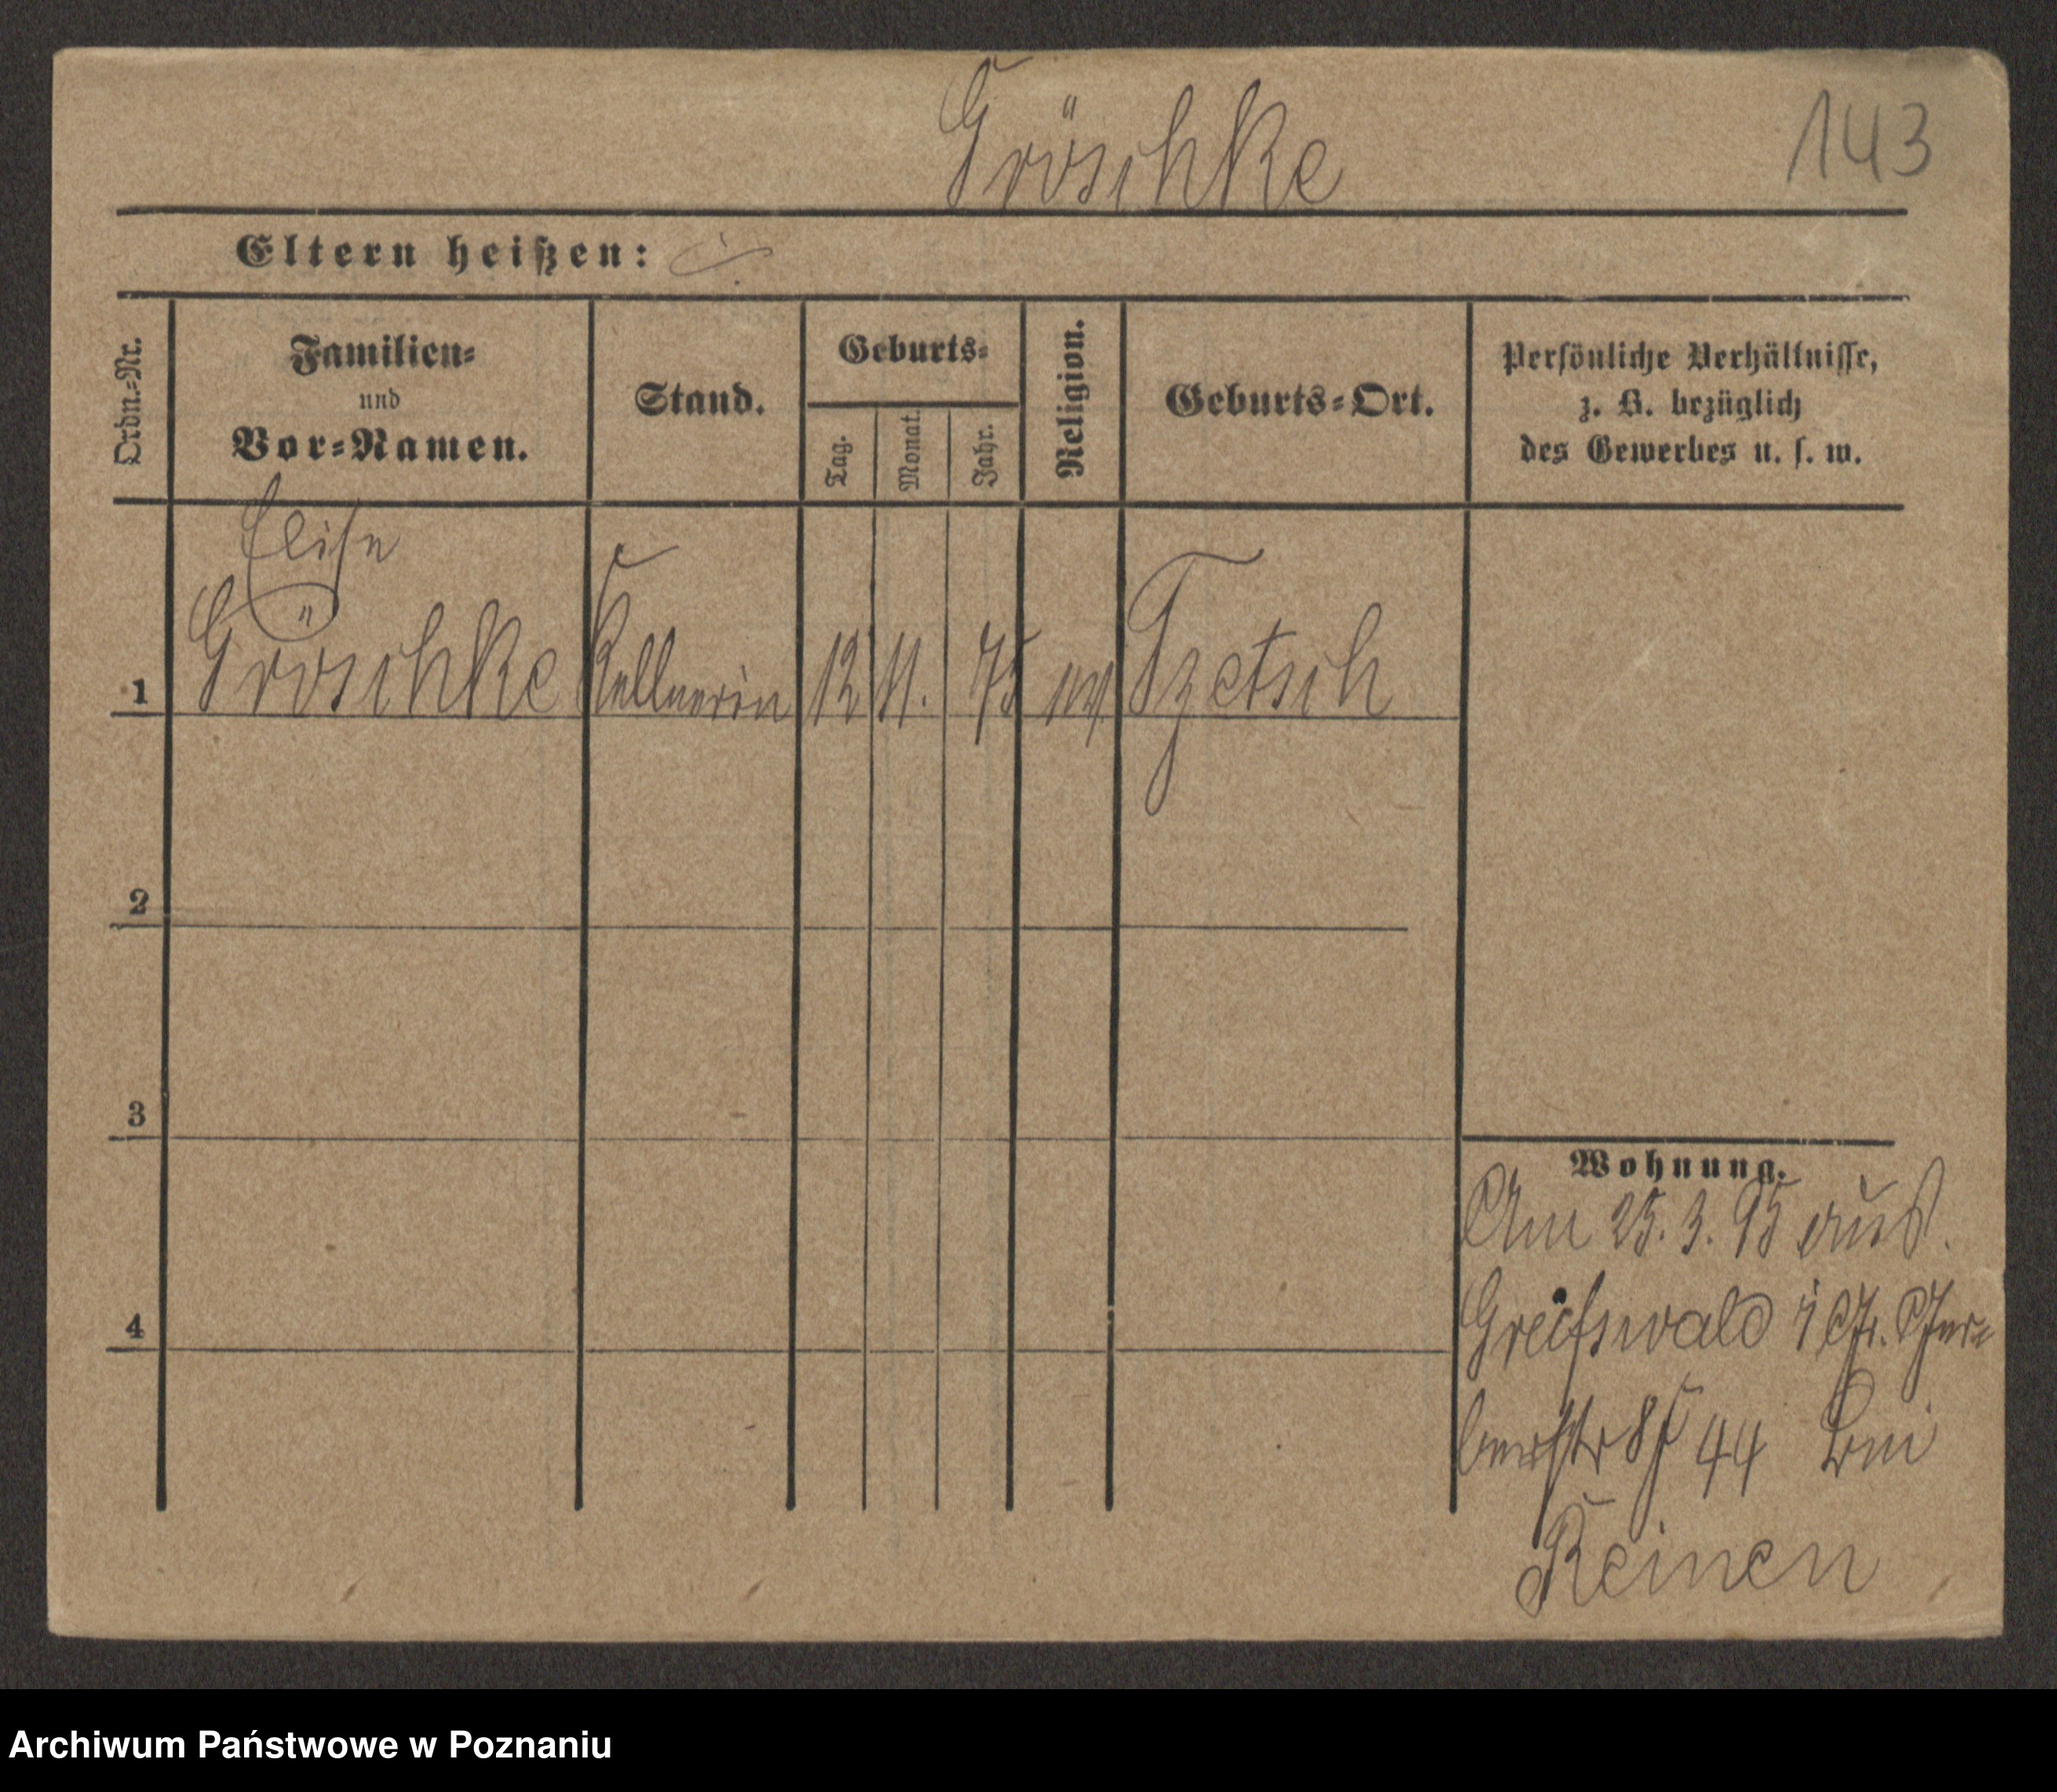 Gröschke
143
Eltern heißen:
Ordn.=Nr.
Familien=
und
Vor=Namen.
Stand.
Geburts=
Tag.
Monat.
Jahr.
Religion.
Geburts=Ort.
Persönliche Verhältnisse,
z. B. bezüglich
des Gewerbes u. s. w.
Elise
1 Gröschke Kellnerin 12 11. 75 ev. Tzetsch
2
3
4
Wohnung.
Am 25.3.95 aus
Greifswald i
44 bei
Reinen
Archiwum Państwowe w Poznaniu